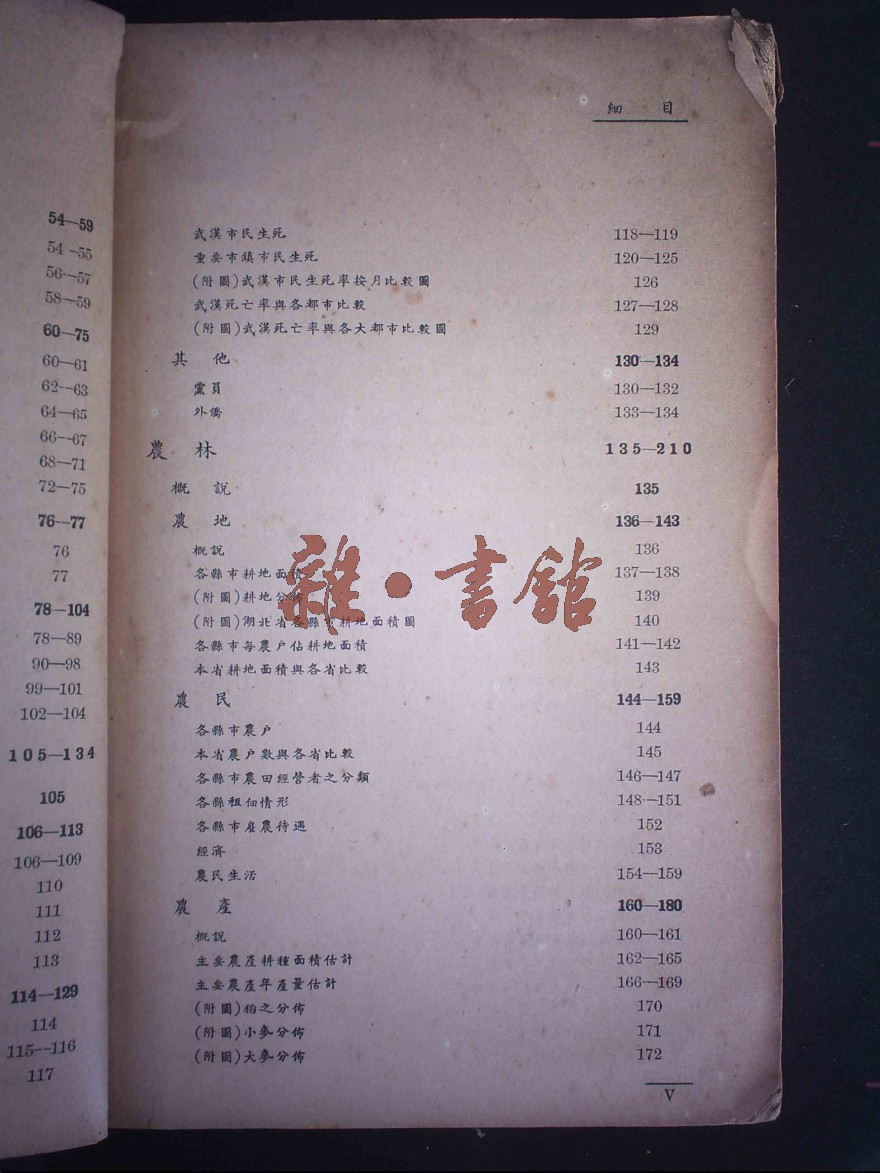 54—59
54—55
56—57
58—59
60—75
60—61
62—63
64—65
66—67
68—71
72—75
76—77
76
77
78—104
78—89
90—98
99—101
102—104
105—134
105
106—113
106—109
110
111
112
113
114—129
114
115—116
117
細 目
武漢市民生死 118—119
重要市鎮市民生死 120—125
(附圖)武漢市民生死率按月比較圖 126
武漢死亡率與各都市比較 127—128
(附圖)武漢死亡率與各大都市比較圖 129
其 他 130—134
黨員 130—132
外僑 133—134
農 林 135—210
概 說 135
農 地 136—143
概說 136
各縣市耕地面積 137—138
(附圖)耕地分佈 139
(附圖)湖北省各縣市耕地面積圖 140
各縣市每農戶佔耕地面積 141—142
本省耕地面積與各省比較 143
農 民 144—159
各縣市農戶 144
本省農戶數與各省比較 145
各縣市農田經營者之分類 146—147
各縣租佃情形 148—151
各縣市雇農待遇 152
經濟 153
農民生活 154—159
農 產 160—180
概說 160—161
主要農產耕種面積估計 162—165
主要農產年產量估計 166—169
(附圖)稻之分佈 170
(附圖)小麥分佈 171
(附圖)大麥分佈 172
V
雜·書館